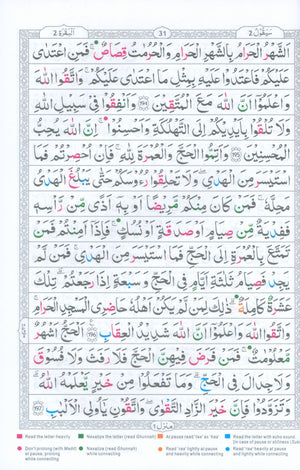 البقرة ٢
31
سيقول ٢
اَلشَّهْرُ الْحَرَامُ بِالشَّهْرِ الْحَرَامِ وَالْحُرُمٰتُ قِصَاصٌ ؕ فَمَنِ اعْتَدٰى
عَلَيْكُمْ فَاعْتَدُوْا عَلَيْهِ بِمِثْلِ مَا اعْتَدٰى عَلَيْكُمْ ۪ وَاتَّقُوا اللّٰهَ
وَاعْلَمُوْۤا اَنَّ اللّٰهَ مَعَ الْمُتَّقِيْنَ ﴿194﴾ وَاَنْفِقُوْا فِيْ سَبِيْلِ اللّٰهِ
وَلَا تُلْقُوْا بِاَيْدِيْكُمْ اِلَى التَّهْلُكَةِ ۛۚ وَاَحْسِنُوْا ۛۚ اِنَّ اللّٰهَ يُحِبُّ
الْمُحْسِنِيْنَ ﴿195﴾ وَاَتِمُّوا الْحَجَّ وَالْعُمْرَةَ لِلّٰهِ ؕ فَاِنْ اُحْصِرْتُمْ فَمَا
اسْتَيْسَرَ مِنَ الْهَدْيِ ۚ وَلَا تَحْلِقُوْا رُءُوْسَكُمْ حَتّٰى يَبْلُغَ الْهَدْيُ
مَحِلَّهٗ ؕ فَمَنْ كَانَ مِنْكُمْ مَّرِيْضًا اَوْ بِهٖۤ اَذًى مِّنْ رَّاْسِهٖ
فَفِدْيَةٌ مِّنْ صِيَامٍ اَوْ صَدَقَةٍ اَوْ نُسُكٍ ۚ فَاِذَاۤ اَمِنْتُمْ ۥ فَمَنْ
تَمَتَّعَ بِالْعُمْرَةِ اِلَى الْحَجِّ فَمَا اسْتَيْسَرَ مِنَ الْهَدْيِ ۚ فَمَنْ لَّمْ
يَجِدْ فَصِيَامُ ثَلٰثَةِ اَيَّامٍ فِي الْحَجِّ وَسَبْعَةٍ اِذَا رَجَعْتُمْ ؕ تِلْكَ
عَشَرَةٌ كَامِلَةٌ ؕ ذٰلِكَ لِمَنْ لَّمْ يَكُنْ اَهْلُهٗ حَاضِرِي الْمَسْجِدِ الْحَرَامِ ؕ
وَاتَّقُوا اللّٰهَ وَاعْلَمُوْۤا اَنَّ اللّٰهَ شَدِيْدُ الْعِقَابِ ﴿196﴾ اَلْحَجُّ اَشْهُرٌ
مَّعْلُوْمٰتٌ ۚ فَمَنْ فَرَضَ فِيْهِنَّ الْحَجَّ فَلَا رَفَثَ وَلَا فُسُوْقَ ۙ
وَلَا جِدَالَ فِي الْحَجِّ ؕ وَمَا تَفْعَلُوْا مِنْ خَيْرٍ يَّعْلَمْهُ اللّٰهُ ؔ
وَتَزَوَّدُوْا فَاِنَّ خَيْرَ الزَّادِ التَّقْوٰى ؗ وَاتَّقُوْنِ يٰۤاُولِي الْاَلْبَابِ ﴿197﴾
Read the letter heavily
Nasalize the letter (read Ghunnah)
At pause read "taa" as "haa"
Read the letter with echo sound
Don't prolong (with Madd) at pause, prolong while connecting
Read (Ghunnah) while connecting
Read "raa" lightly at pause and heavily while connecting
Read "raa" heavily at pause and lightly while connecting